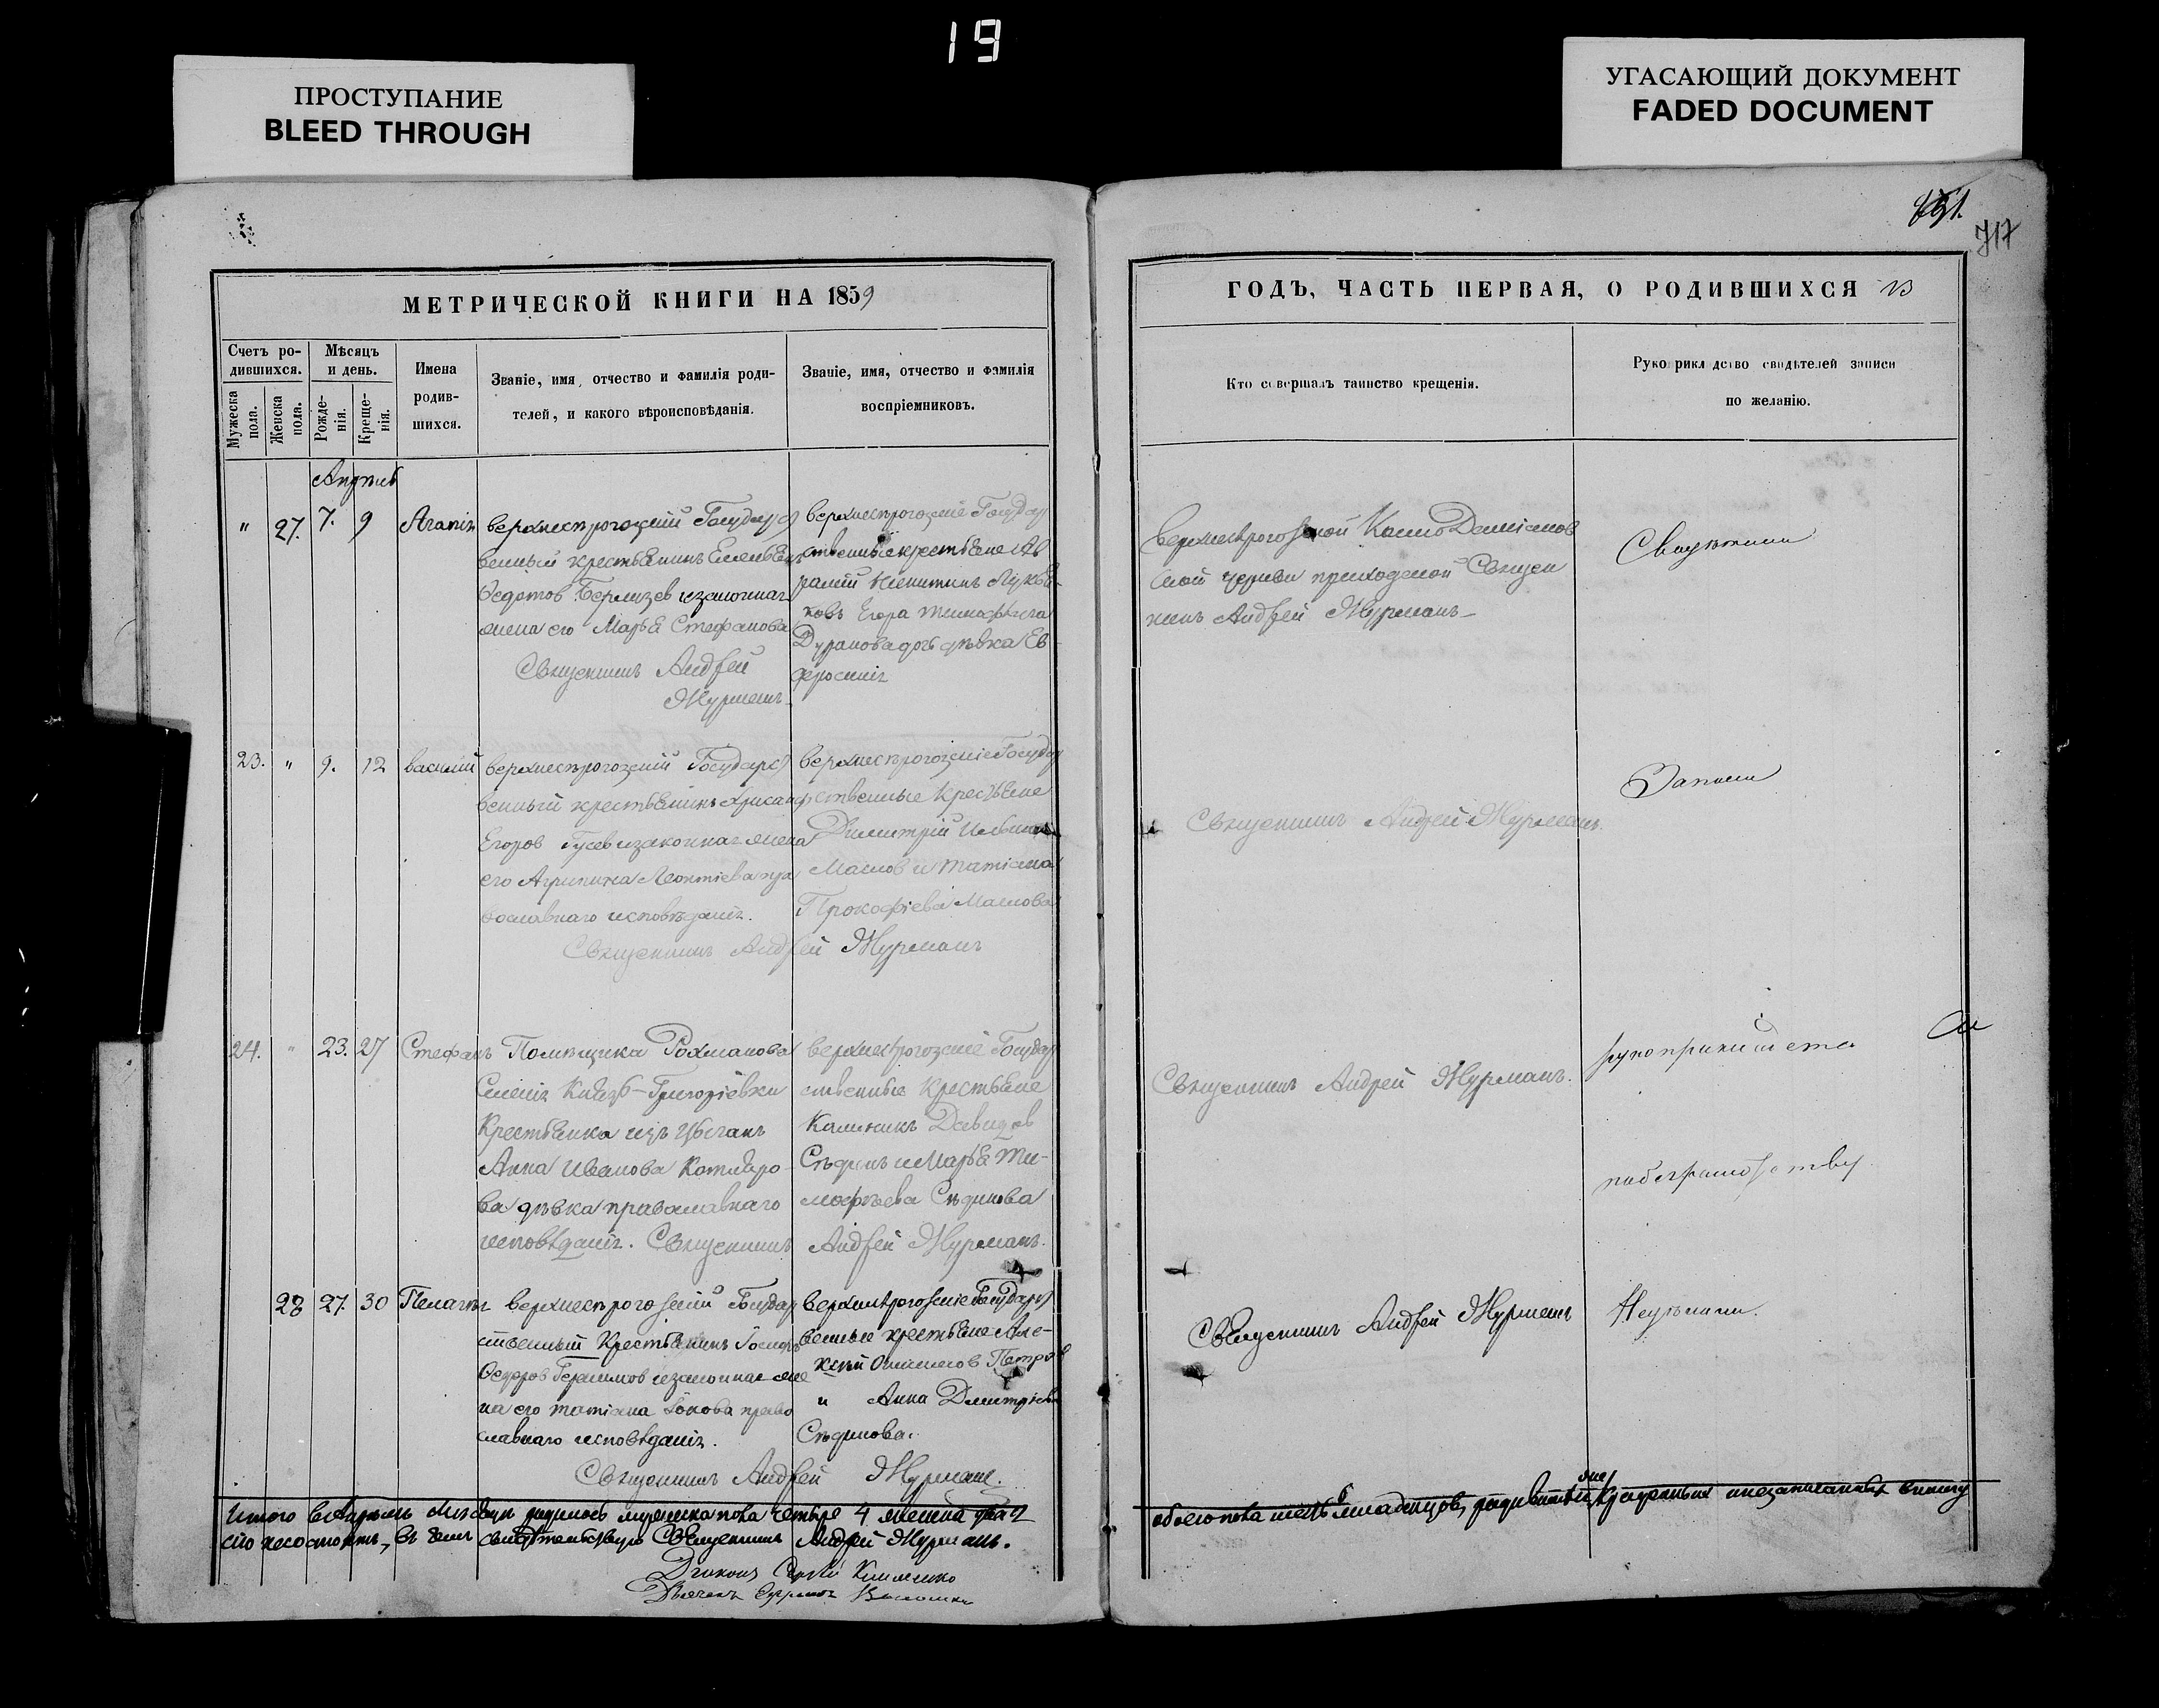 19
ПРОСТУПАНИЕ
BLEED THROUGH
УГАСАЮЩИЙ ДОКУМЕНТ
FADED DOCUMENT
717
МЕТРИЧЕСКОЙ КНИГИ НА 1859
Счетъ ро-
дившихся.
Мужеска
пола.
Женска
пола.
Мѣсяцъ
и день.
Рожде-
нія.
Креще-
нія.
Имена
родив-
шихся.
Званіе, имя, отчество и фамилія роди-
телей, и какого вѣроисповѣданія.
Званіе, имя, отчество и фамилія
воспріемниковъ.
"
27.
7.
9
Агапія
верхнерогозскій Государс
венный крестьянинъ Емельянъ
Федотов изаконная
жена его Марья Стефанова
Священникъ Андрей
Журманъ
верхнерогозскіе Государ
ственные крестьяне Ав
рамій Никитинъ
ковъ Егора Тимофѣева
Дуранова дочь дѣвка Ев
фросинія
23.
"
9.
12
василій
верхнерогозскій Государс
венный крестьянинъ Хрисанф
Егоров Гусев изаконная жена
его Агрипина Леонтіева пра
вославнаго исповѣданія.
верхнерогозскіе Государ
ственные Крестьяне
Димитрій
Маслов и татіана
Прокофіева Маслова
Священникъ Андрей Журманъ
24.
"
23.
27
Стефанъ
Помѣщика Рахманова
Селенія Князь-Григорiевки
Крестьянка изъ Цыганъ
Анна Иванова
ва дѣвка православнаго
исповѣданія. Священникъ
верхнерогозскіе Государ
ственные Крестьяне
Калиникъ Давидов
Сѣдинъ и Марья Ти-
мофѣева Сѣдинова
Андрей Журманъ.
28
27.
30
Пелагія
верхнерогозскій Государ
ственный Крестьянинъ
Федоров Герасимов изаконная же
на его татіана право
славнаго исповѣданія.
верхнерогозскіе Государс
венные крестьяне Але-
ксѣй Петров
и Анна Дмитріева
Сѣдинова.
Священникъ Андрей Журманъ.
Итого в Апрѣлѣ мѣсяцѣ родилось мужеска пола четыре 4 женска два 2
сію несостоитъ, въ чемъ свидѣтельствую Священникъ Андрей Журманъ.
Діаконъ Сергій Клименко
Дьячекъ
ГОДЪ, ЧАСТЬ ПЕРВАЯ, О РОДИВШИХСЯ
Кто совершалъ таинство крещенія.
Рукоприкладство свидѣтелей записи
по желанію.
верхнерогозской Космо Даміанов
ской церкви приходской Священ
никъ Андрей Журманъ
Свидѣтели
Священникъ Андрей Журманъ.
Записи
Священникъ Андрей Журманъ.
Священникъ Андрей Журманъ
обоего пола шесть младенцовъ, родившихся, крещенныхъ инезаписанныхъ вкнигу